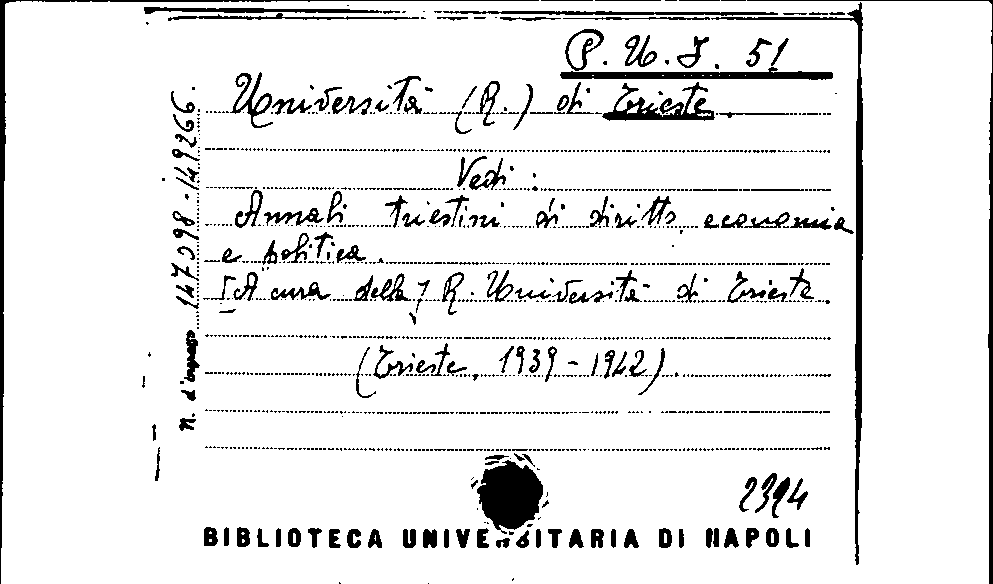 P. U. I. 51
Università (R.) di Trieste.
Vedi:
Annali triestini di diritto, economia
e politica.
[A cura della] R. Università di Trieste.
(Trieste, 1939-1942).
N. d'ingresso 147098-149266.
2394
BIBLIOTECA UNIVERSITARIA DI NAPOLI